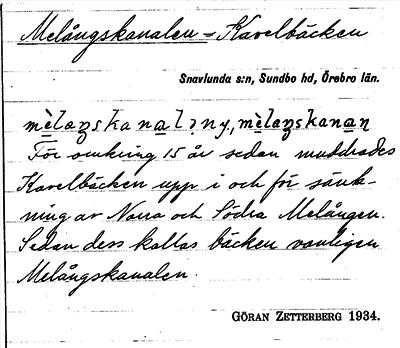 Melångskanalen = Kavelbäcken
Snavlunda s:n, Sundbo hd, Örebro län.
För omkring 15 år sedan muddrades
Kavelbäcken upp i och för sänk-
ning av Norra och Södra Melången.
Sedan dess kallas bäcken vanligen
Melångskanalen.
GÖRAN ZETTERBERG 1934.